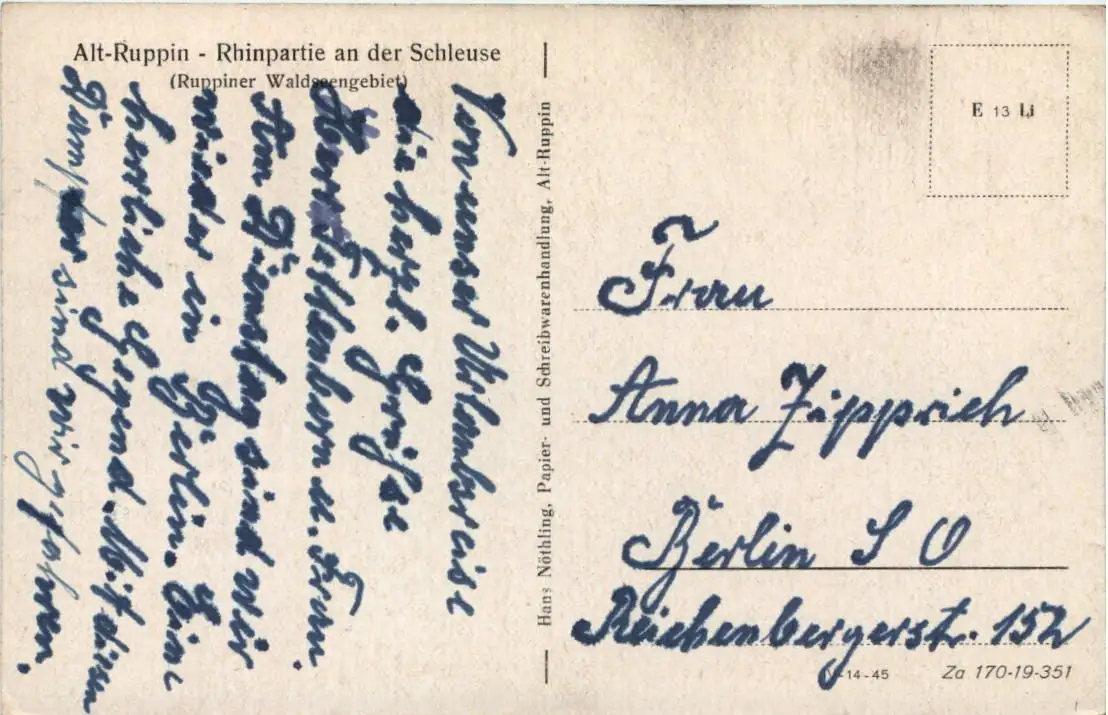 Alt-Ruppin - Rhinpartie an der Schleuse
(Ruppiner Waldseengebiet)
Von unser Urlaubreise
die herzl. Grüße
u. Frau.
Am Dienstag sind wir
wieder in Berlin. Eine
herrliche Gegend. Mit diesen
Dampfer sind wir gefahren.
Hans Nöthling, Papier- und Schreibwarenhandlung, Alt-Ruppin
E 13 Li
Frau
Anna Zipprich
Berlin S O
Reichenbergerstr. 152
-14-45
Za 170-19-351